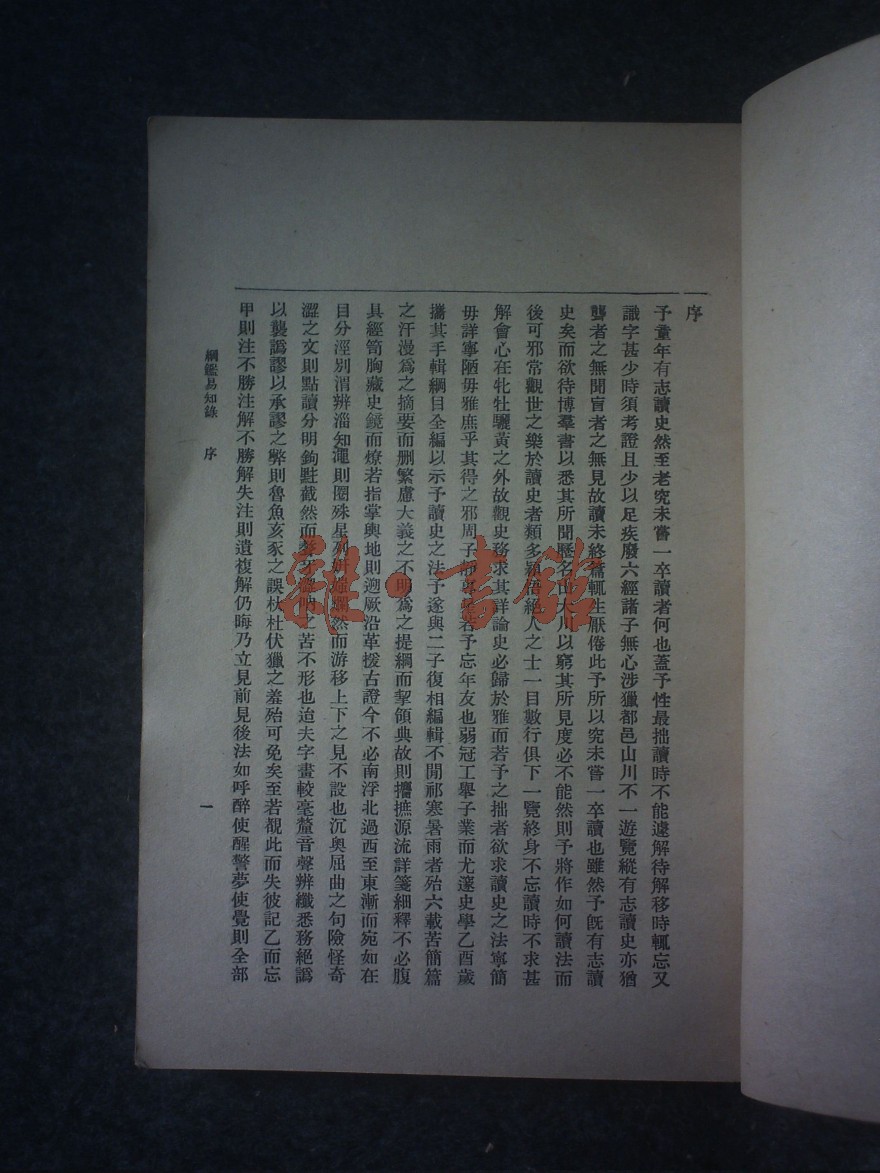 序
予童年有志讀史然至老究未嘗一卒讀者何也蓋予性最拙讀時不能遽解待解移時輒忘又
識字甚少時須考證且少以足疾廢六經諸子無心涉獵都邑山川不一遊覽縱有志讀史亦猶
聾者之無聞盲者之無見故讀未終篇輒生厭倦此予所以究未嘗一卒讀也雖然予旣有志讀
史矣而欲待博羣書以悉其所聞歷名山大川以窮其所見度必不能然則予將作如何讀法而
後可邪常觀世之樂於讀史者類多穎悟絕人之士一目數行俱下一覽終身不忘讀時不求甚
解會心在牝牡驪黃之外故觀史務求其詳論史必歸於雅而若予之拙者欲求讀史之法寧簡
毋詳寧陋毋雅庶乎其得之邪周子 若予忘年友也弱冠工舉子業而尤邃史學乙酉歲
攜其手輯綱目全編以示予讀史之法予遂與二子復相編輯不閒祁寒暑雨者殆六載苦簡篇
之汗漫爲之摘要而删繁慮大義之不明爲之提綱而挈領典故則攟摭源流詳箋細釋不必腹
具經笥胸藏史鏡而燎若指掌輿地則遡厥沿革援古證今不必南浮北過西至東漸而宛如在
目分涇別渭辨淄知澠則圈殊星列 然而游移上下之見不設也沉奧屈曲之句險怪奇
澀之文則點讀分明鉤 截然而 之苦不形也迨夫字畫較毫釐音聲辨纖悉務絕譌
以襲譌謬以承謬之弊則魯魚亥豕之誤杕杜伏獵之羞殆可免矣至若覩此而失彼記乙而忘
甲則注不勝注解不勝解失注則遺複解仍晦乃立見前見後法如呼醉使醒警夢使覺則全部
綱鑑易知錄 序
一
雜·書館